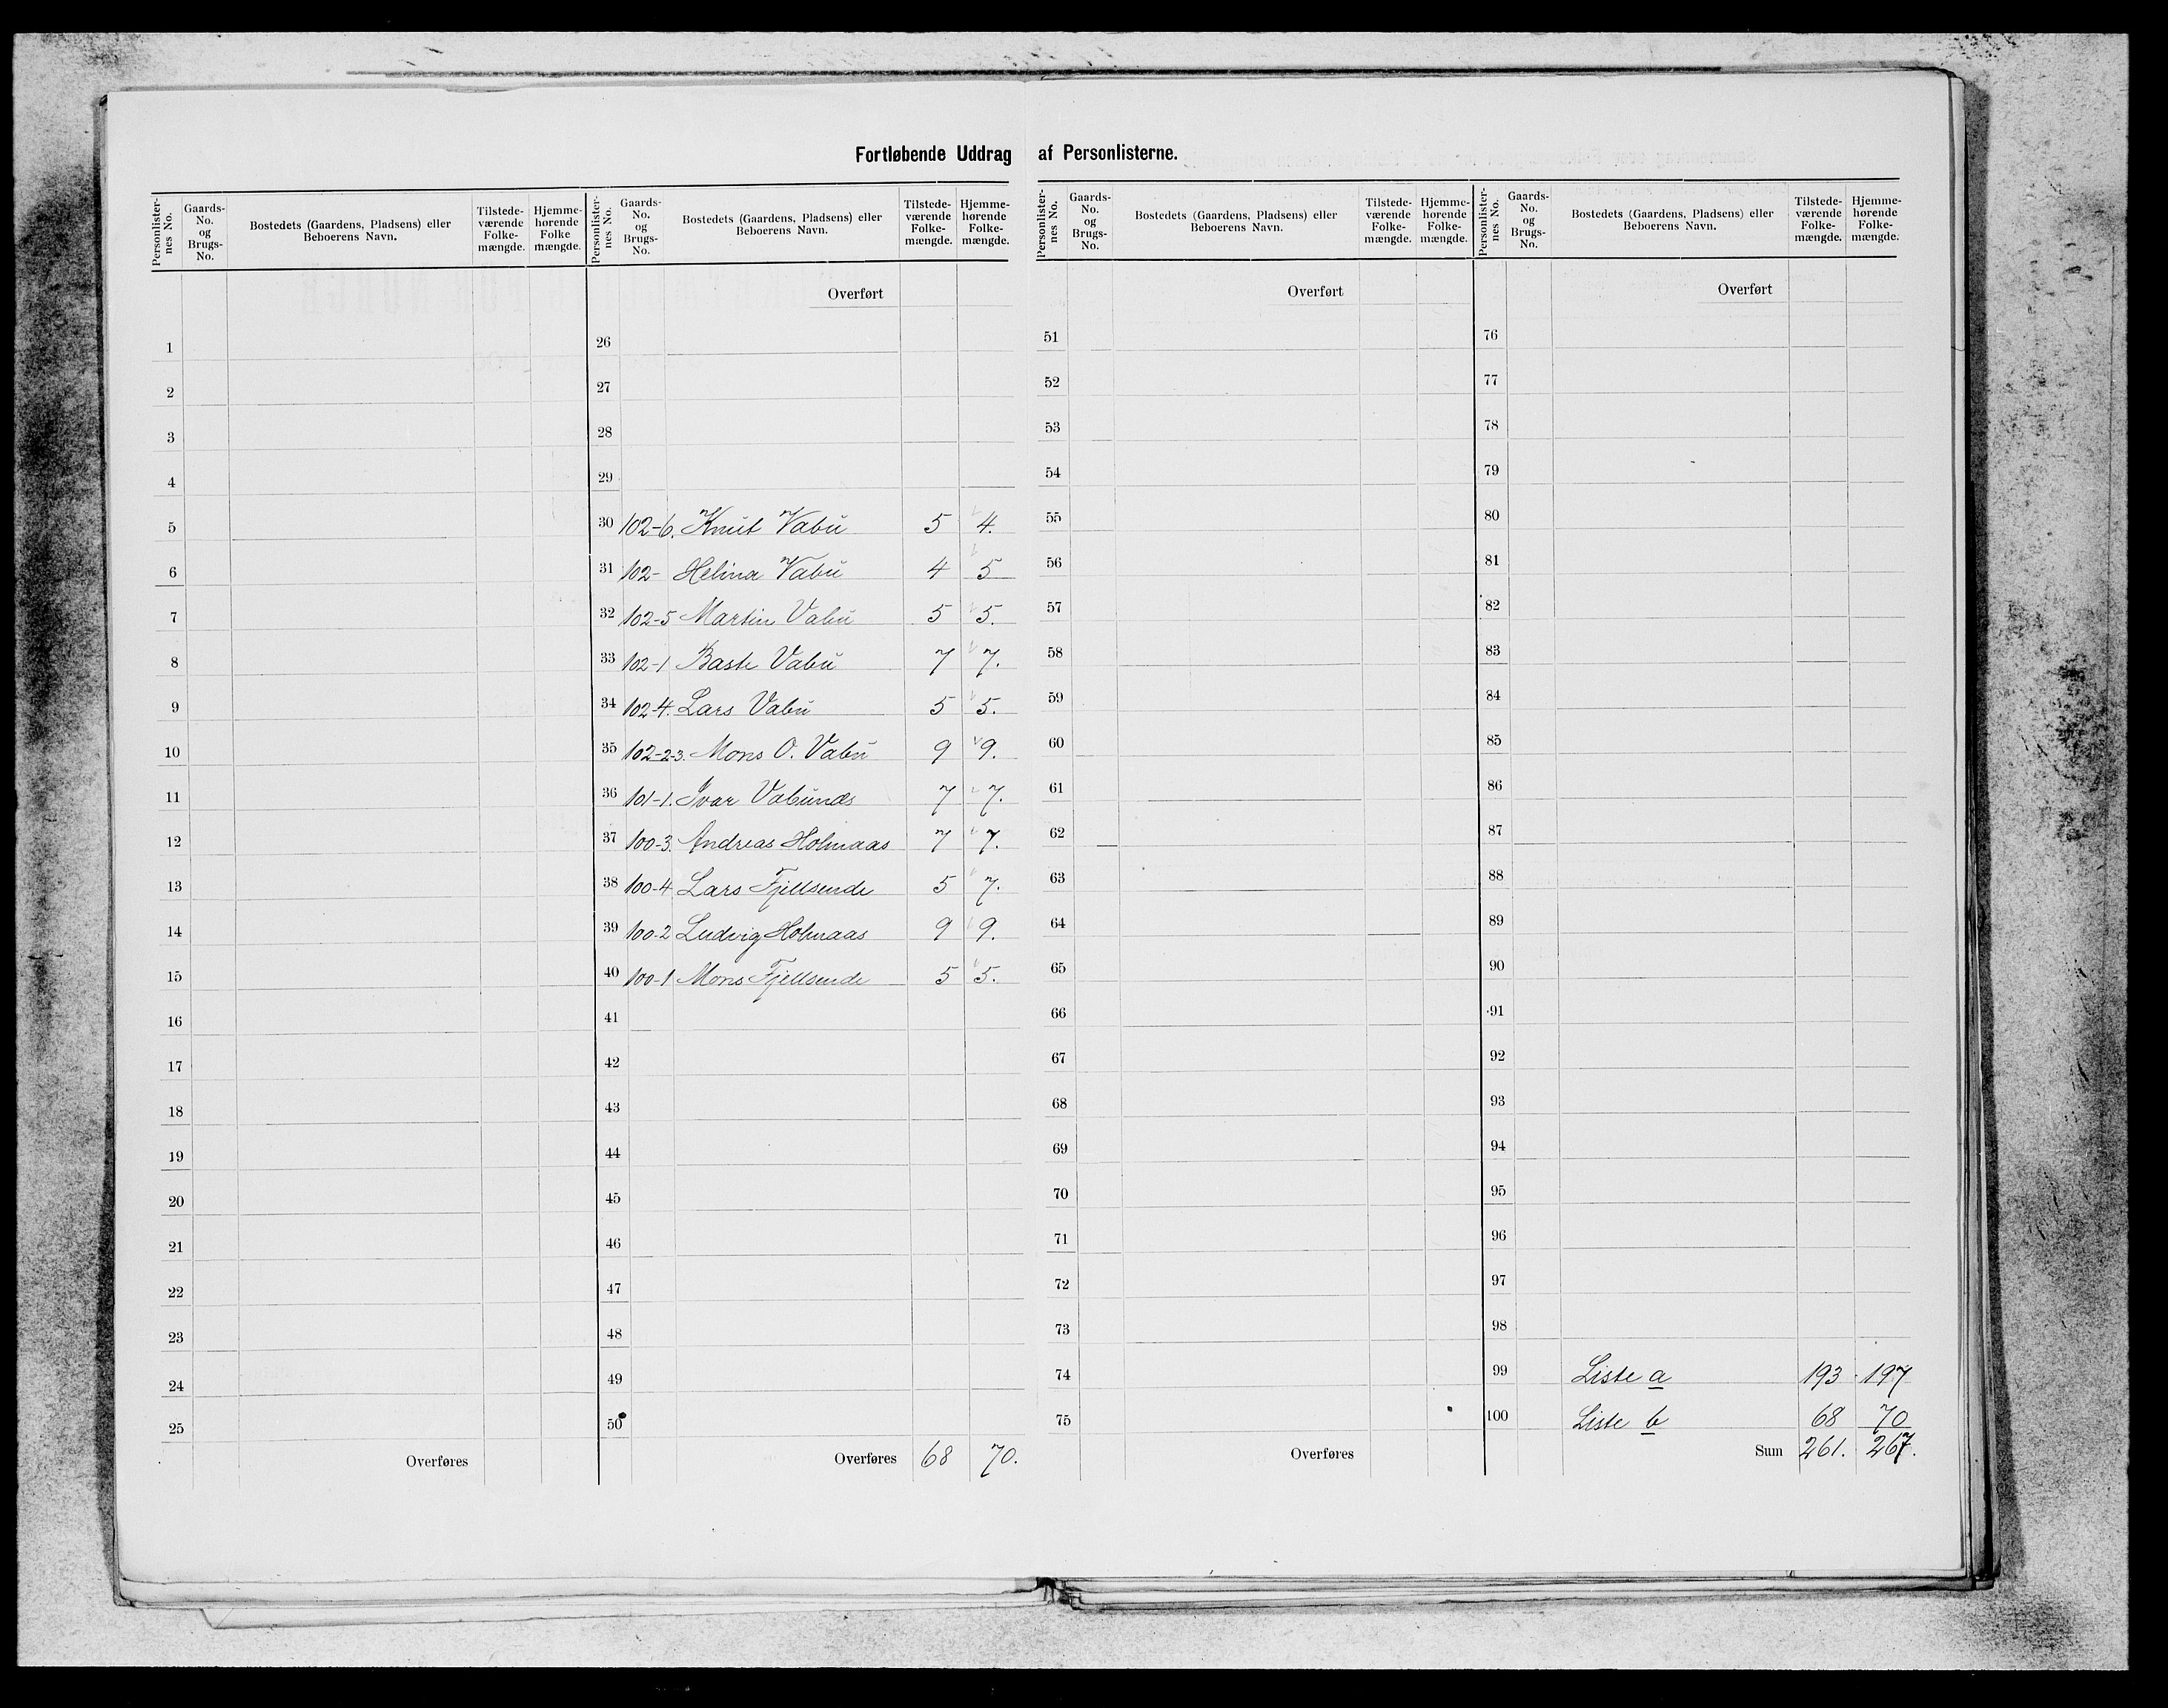 Fortløbende Uddrag af Personlisterne.
Personlister-nes No. Gaards-No. og Brugs-No. Bostedets (Gaardens, Pladsens) eller Beboerens Navn. Tilstede-værende Folke-mængde. Hjemme-hørende Folke mængde.
1
2
3
4
5
6
7
8
9
10
11
12
13
14
15
16
17
18
19
20
21
22
23
24
25
Overføres
Personlister-nes No. Gaards-No. og Brugs-No. Bostedets (Gaardens, Pladsens) eller Beboerens Navn. Tilstede-værende Folke-mængde. Hjemme-hørende Folke-mængde.
Overført
26
27
28
29
30 102-6. Knut Vabü 5 4.
31 102- Helina Vabü 4 5
32 102-5 Martin Vabü 5 5.
33 102-1 Baste Vabü 7 7.
34 102-4. Lars Vabü 5 5.
35 102-2-3. Mons O. Vabü 9 9.
36 101-1. Ivar Vabünæs 7 7.
37 100-3. Andreas Holmaas 7 7.
38 100-4 Lars Fjellsende 5 7.
39 100-2 Ludvig Holmaas 9 9.
40 100-1 Mons Fjellsende 5 5.
41
42
43
44
45
46
47
48
49
50
Overføres 68 70.
Personlister-nes No. Gaards-No. og Brugs-No. Bostedets (Gaardens, Pladsens) eller Beboerens Navn. Tilstede-værende Folke-mængde. Hjemme-hørende Folke-mængde.
Overført
51
52
53
54
55
56
57
58
59
60
61
62
63
64
65
66
67
68
69
70
71
72
73
74
75
Overføres
Personlister-nes No. Gaards-No. og Brugs-No. Bostedets (Gaardens, Pladsens) eller Beboerens Navn. Tilstede-værende Folke-mængde. Hjemme-hørende Folke-mængde.
Overført
76
77
78
79
80
81
82
83
84
85
86
87
88
89
90
91
92
93
94
95
96
97
98
99 Liste a 193 197
100 Liste b 68 70
Sum 261. 267.